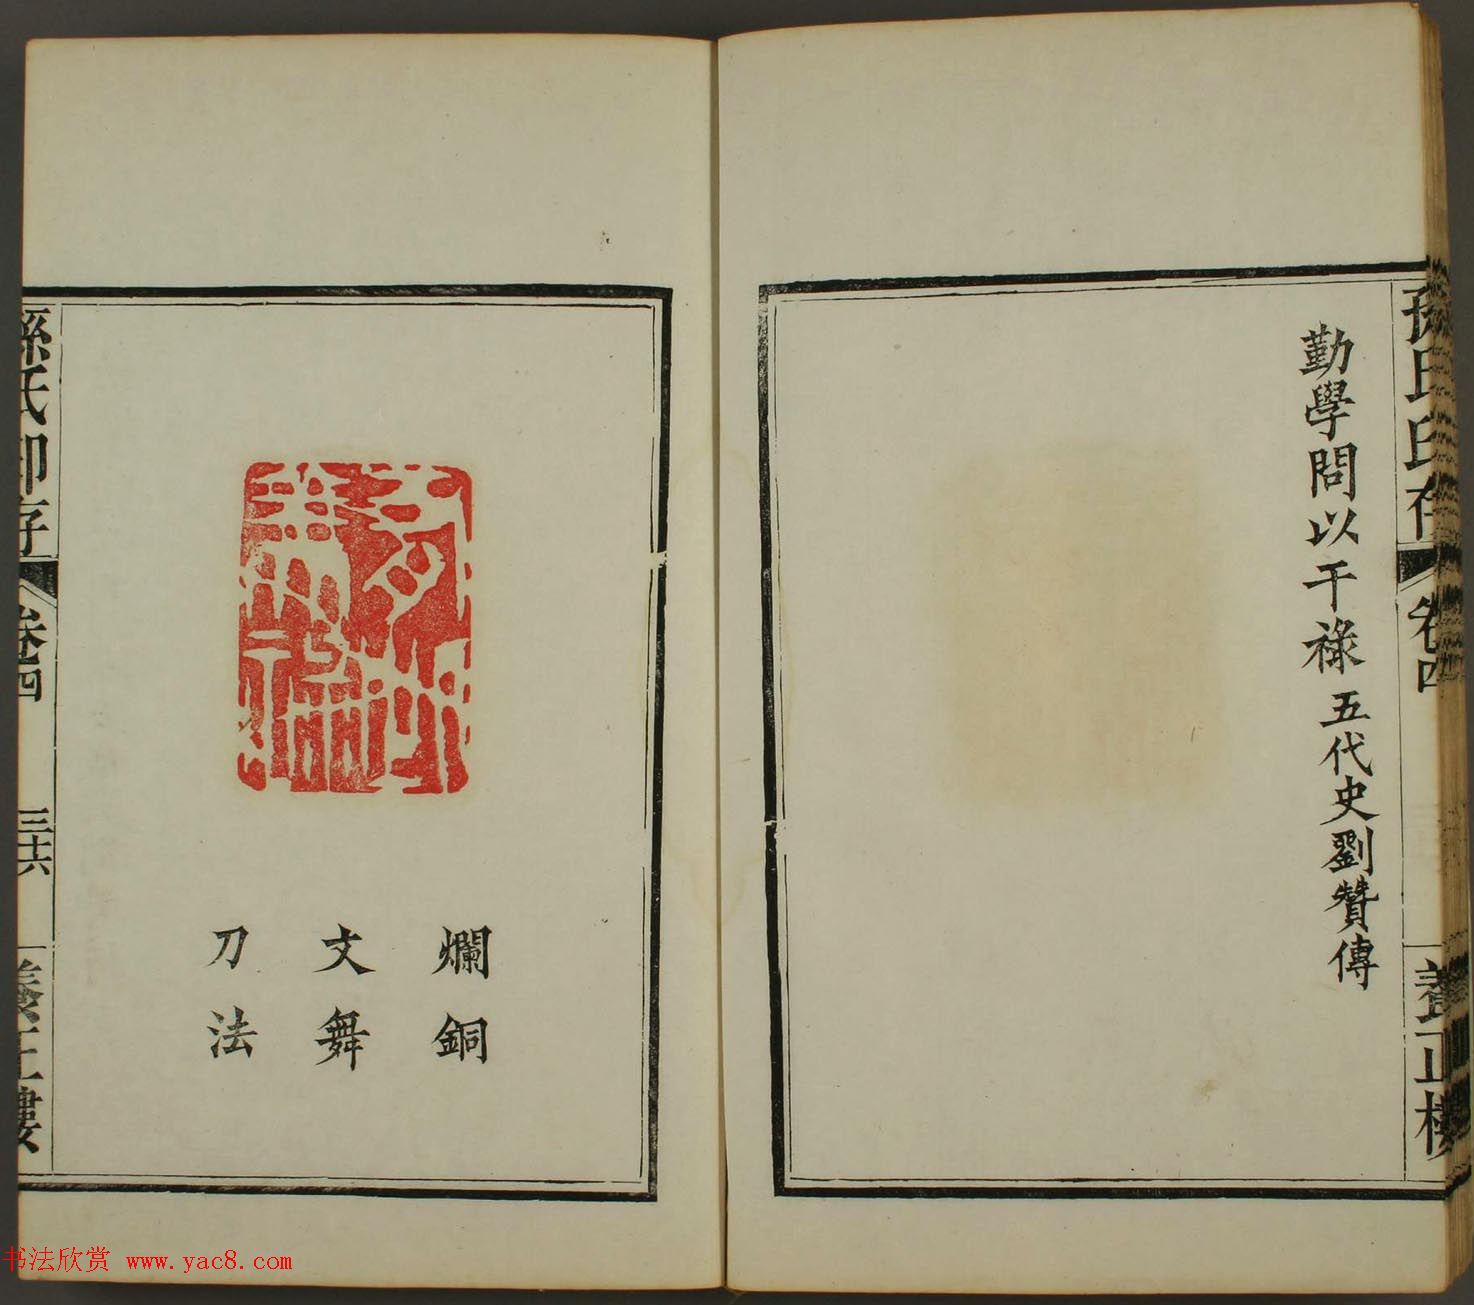 孫氏印存
卷四
養正樓
勤學問以干祿 五代史劉贊傳
爛銅
文舞
刀法
孫氏印存
卷四
三十六
養正樓
书法欣赏 www.yac8.com